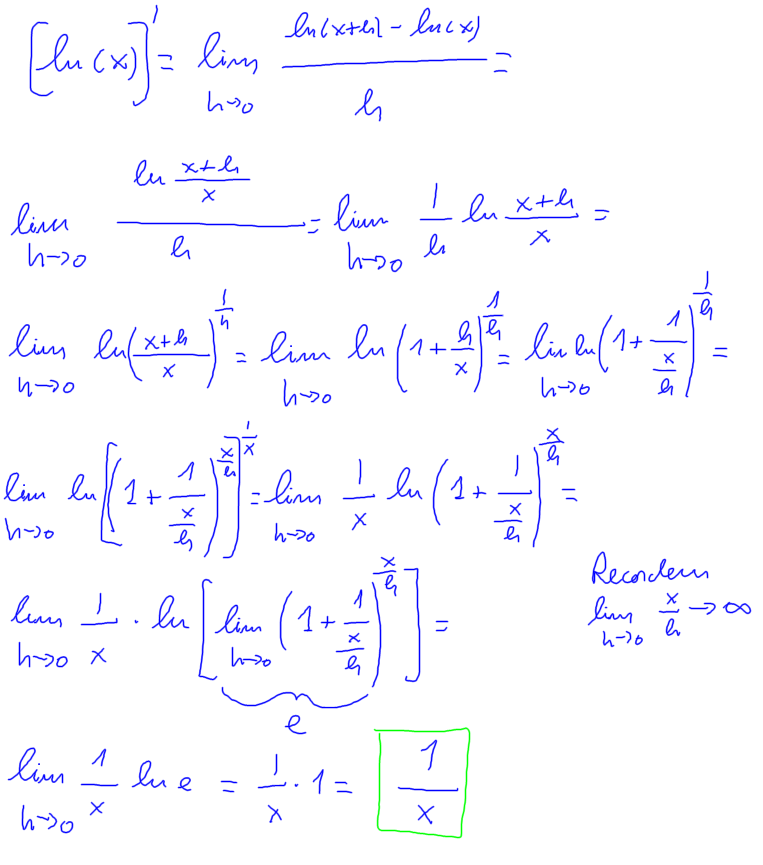 [ln(x)]' = lim h→0 (ln(x+h) - ln(x))/h =
lim h→0 (ln (x+h)/x)/h = lim h→0 1/h ln (x+h)/x =
lim h→0 ln((x+h)/x)^(1/h) = lim h→0 ln(1 + h/x)^(1/h) = lim h→0 ln(1 + 1/(x/h))^(1/h) =
lim h→0 ln[(1 + 1/(x/h))^(x/h)]^(1/x) = lim h→0 1/x ln(1 + 1/(x/h))^(x/h) =
Recordem
lim h→0 x/h → ∞
lim h→0 1/x · ln[lim h→0 (1 + 1/(x/h))^(x/h)] =
e
lim h→0 1/x ln e = 1/x · 1 = 1/x